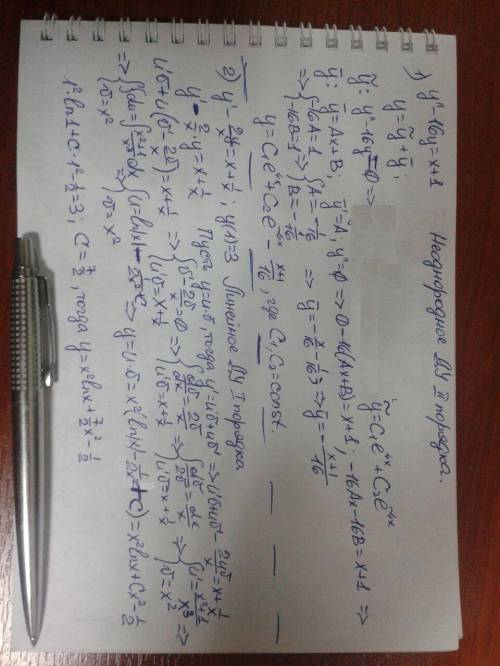 Неоднородное ДУ II порядка.
1) y'' - 16y = x + 1
y = ỹ + ȳ;
ỹ: y'' - 16y = 0 => ỹ = C₁e^{4x} + C₂e^{-4x}
ȳ: ȳ = Ax + B; ȳ' = A; ȳ'' = 0 => 0 - 16(Ax + B) = x + 1; -16Ax - 16B = x + 1 =>
=> {-16A = 1, -16B = 1 => {A = -1/16, B = -1/16 => ȳ = -x/16 - 1/16 => ȳ = -(x+1)/16
y = C₁e^{4x} + C₂e^{-4x} - (x+1)/16, где C₁, C₂ = const.
2) y' - 2y/x = x + 1/x; y(1) = 3 Линейное ДУ I порядка
y' - 2/x y = x + 1/x Пусть y = uv, тогда y' = u'v + uv' => u'v + uv' - 2uv/x = x + 1/x
u'v + u(v' - 2v/x) = x + 1/x => {v' - 2v/x = 0, u'v = x + 1/x => {dv/dx = 2v/x, u'v = x + 1/x => {dv/2v = dx/x, u'v = x + 1/x => {u' = (x²+1)/x³, v = x² =>
=> {∫du = ∫(x²+1)/x³ dx, v = x² => {u = ln|x| - 1/2x² + C, v = x² => y = u·v = x²(ln|x| - 1/2x² + C) = x² ln x + Cx² - 1/2
1²·ln1 + C·1² - 1/2 = 3; C = 7/2, тогда y = x² ln x + 7/2 x² - 1/2